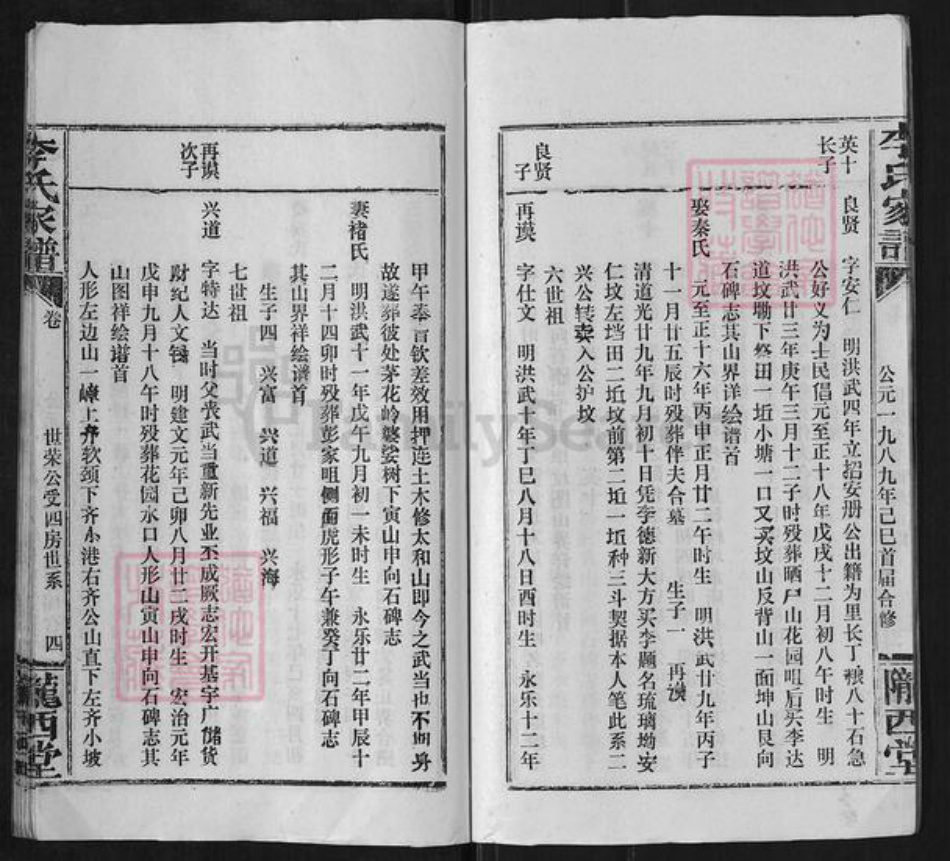 李氏家谱
公元一九八九年己巳首届合修
陇西堂
英十
长子
良贤 字安仁 明洪武四年立招安册公出籍为里长丁粮八十石急
公好义为士民倡元至正十八年戊戌十二月初八午时生 明
洪武廿三年庚午三月十二子时殁葬晒尸山花园咀后买李达
道坟塝下 田一坵小塘一口又买坟山反背山一面坤山艮向
石碑志其山界详绘谱首
娶秦氏 元至正十六年丙申正月廿二午时生 明洪武廿九年丙子
十一月廿五辰时殁葬伴夫合墓 生子一 再谟
清道光廿九年九月初十日凭李德新大方买李题名琉璃坳安
仁坟左垱田二坵坟前第二坵一坵种三斗契据本人笔此系二
兴公转卖入公护坟
六世祖
良贤
子
再谟 字仕文 明洪武十年丁巳八月十八日酉时生 永乐十二年
甲午奉旨钦差效用押运土木修太和山即今之武当也不测身
故遂葬彼处茅花岭婆娑树下寅山申向石碑志
妻褚氏 明洪武十一年戊午九月初一未时生 永乐廿二年甲辰十
二月十四卯时殁葬彭家咀侧面虎形子午兼癸丁向石碑志
其山界祥绘谱首
生子四 兴富 兴道 兴福 兴海
七世祖
再谟
次子
兴道 字特达 当时父丧武当重新先业丕成厥志宏开基宇广储货
财纪人文 明建文元年己卯八月廿三戌时生 宏治元年
戊申九月十八午时殁葬花园水口人形山寅山申向石碑志其
山图祥绘谱首
人形左边山一嶂上齐软颈下齐小港右齐公山直下左齐小坡
李氏家谱
卷
世荣公受四房世系
四
陇西堂